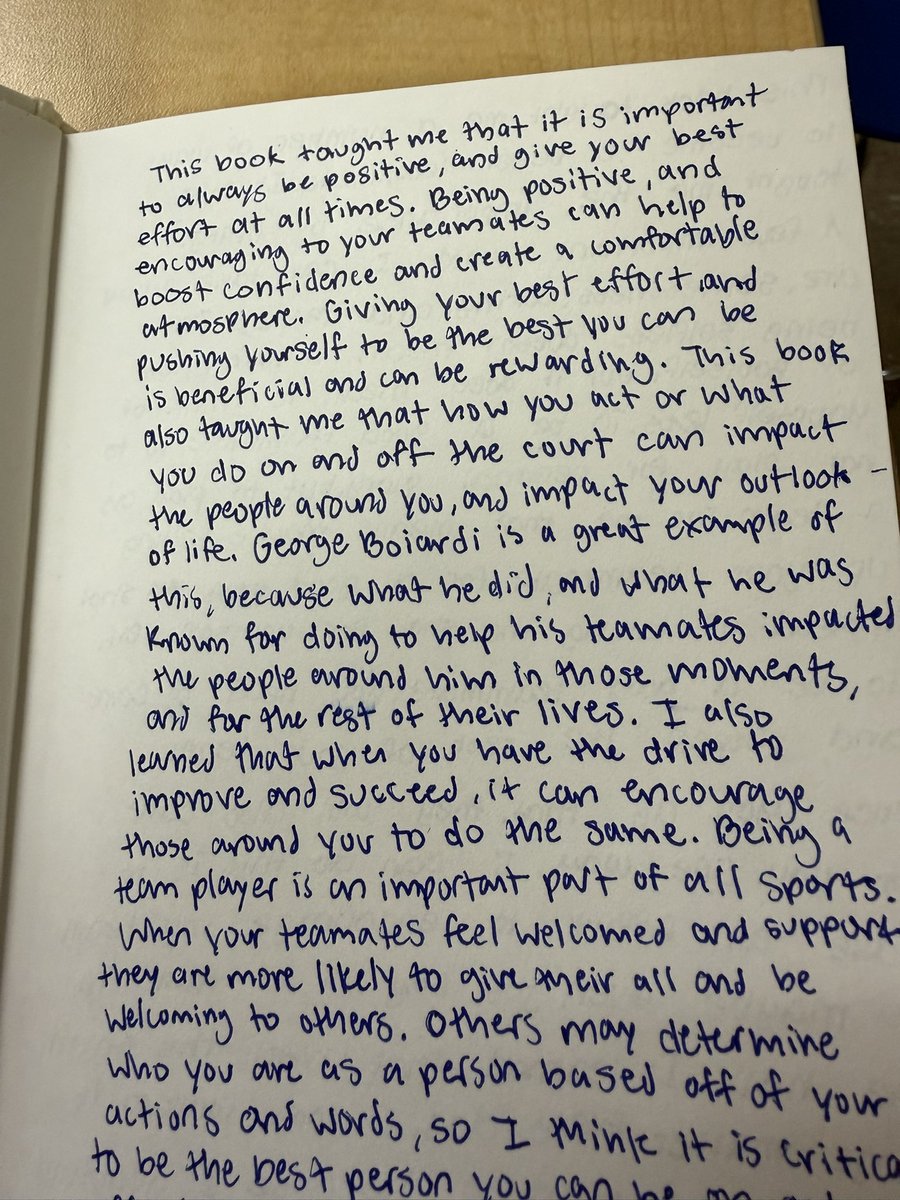 This book taught me that it is important
to always be positive, and give your best
effort at all times. Being positive, and
encouraging to your teamates can help to
boost confidence and create a comfortable
atmosphere. Giving your best effort, and
pushing yourself to be the best you can be
is beneficial and can be rewarding. This book
also taught me that how you act or what
you do on and off the court can impact
the people around you, and impact your outlook -
of life. George Boiardi is a great example of
this, because what he did, and what he was
known for doing to help his teamates impacted
the people around him in those moments,
and for the rest of their lives. I also
learned that when you have the drive to
improve and succeed, it can encourage
those around you to do the same. Being a
team player is an important part of all sports.
When your teamates feel welcomed and support
they are more likely to give their all and be
welcoming to others. Others may determine
who you are as a person based off of your
actions and words, so I think it is critica
to be the best person you can be on